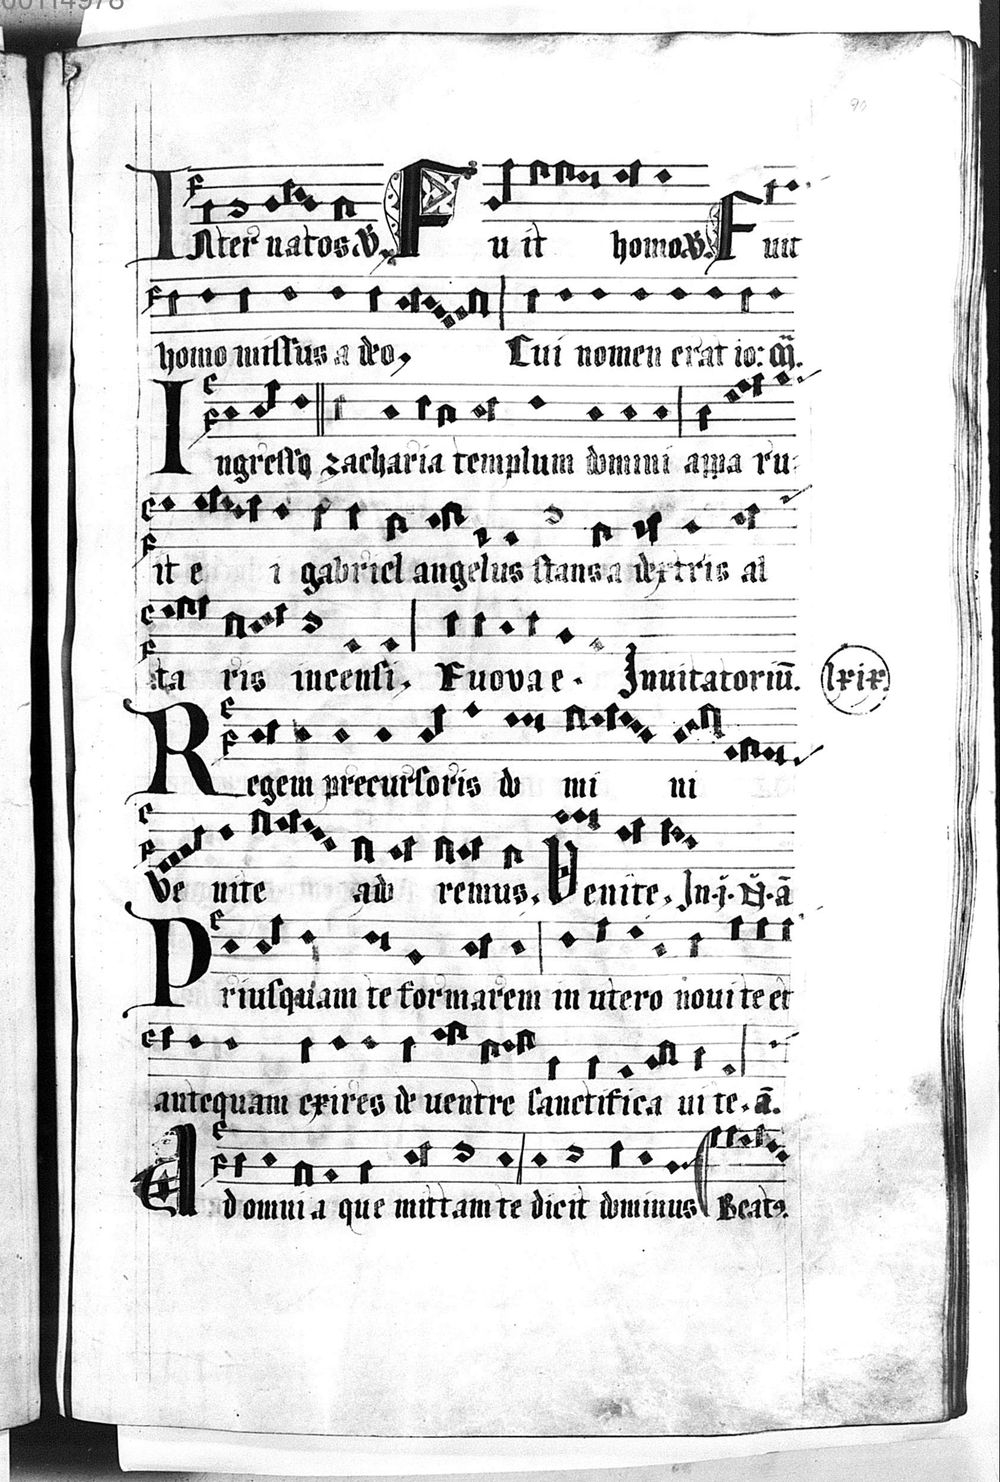 90
Inter natos. V. Fuit homo. V. Fuit
homo missus a deo, Cui nomen erat io: am.
Ingressus zacharia templum domini appa ru-
it e i gabriel angelus stans a dextris al
ta ris incensi, Euovae. Inuitatoriū. lxix.
Regem precursoris do mi ni
Ve nite ado remus. Venite, In. j. N. ā
Priusquam te formarem in utero noui te et
antequam exires de ventre sanctifica ui te, ā.
Ad omnia que mittam te dicit dominus Beatus